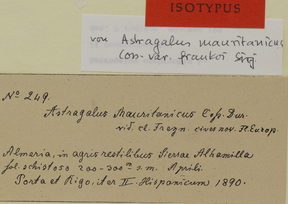 ISOTYPUS
von Astragalus mauritanicus
Coss. var.
No 249.
Astragalus Mauritanicus Cos. Dur.
cives nov. Fl. Europ.
Almeria, in agris restilibus Sierrae Alhamilla
sol. schistoso 200-300m s. m. Aprili.
Porta et Rigo, iter II. Hispanicum 1890.